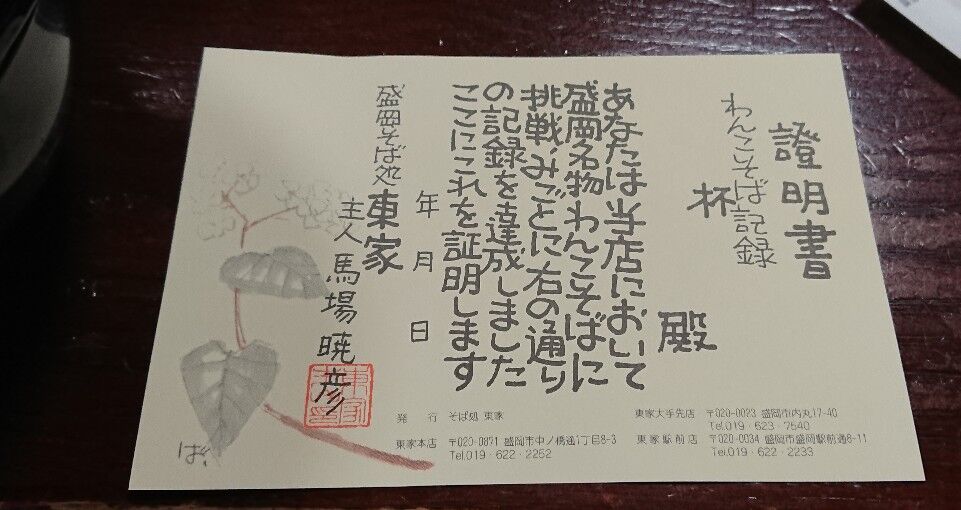 證明書
わんこそば記録
杯
殿
あなたは当店において
盛岡名物わんこそばに
挑戦、みごとに右の通り
の記録を達成しました
ここにこれを証明します
年 月 日
盛岡そば処
東家
主人 馬場暁彦
東家
ば
発 行 そば処 東家
東家本店 〒020-0871 盛岡市中ノ橋通1丁目8-3
Tel.019・622・2252
東家大手先店 〒020-0023 盛岡市内丸17-40
Tel.019・623・7540
東家駅前店 〒020-0034 盛岡市盛岡駅前通8-11
Tel.019・622・2233